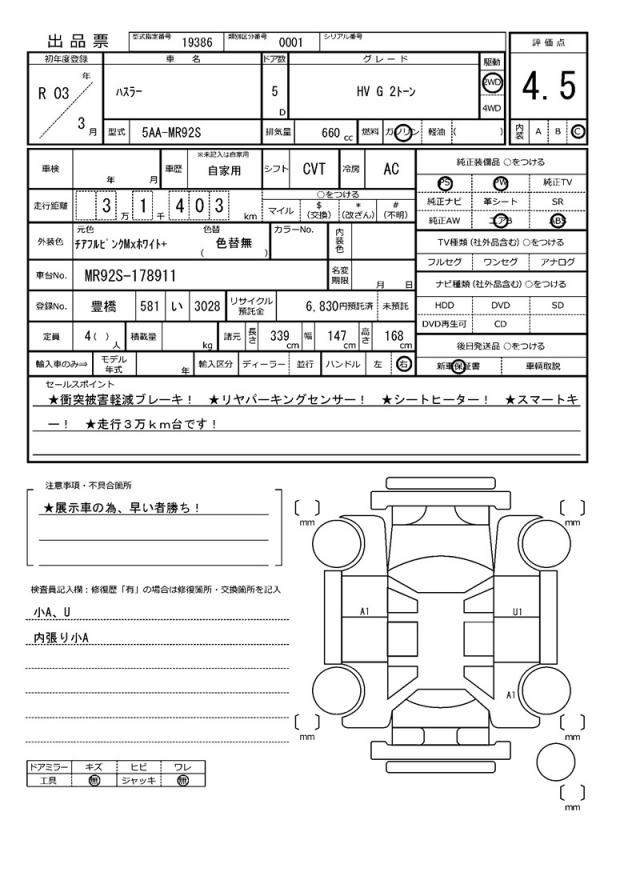 出品票 型式指定番号 19386 類別区分番号 0001 シリアル番号
評価点
4.5
内装 A B C
初年度登録 車名 ドア数 グレード 駆動
R 03 年 3 月 ハスラー 5 D HV G 2トーン 2WD 4WD
型式 5AA-MR92S 排気量 660 cc 燃料 ガソリン 軽油 ( )
車検 年 月 車歴 ※未記入は自家用 自家用 シフト CVT 冷房 AC
走行距離 3 万 1 千 4 0 3 km ○をつける
マイル $(交換) *(改ざん) #(不明)
外装色 元色 ﾁｱﾌﾙﾋﾟﾝｸMxﾎﾜｲﾄ+ 色替 ( 色替無 ) カラーNo. 内装色
車台No. MR92S-178911 名変期限 月 日
登録No. 豊橋 581 い 3028 リサイクル預託金 6,830円預託済 未預託
定員 4( )人 積載量 kg 諸元 長さ 339cm 幅 147cm 高さ 168cm
輸入車のみ⇒ モデル年式 年 輸入区分 ディーラー 並行 ハンドル 左 右
純正装備品 ○をつける
PS PW 純正TV
純正ナビ 革シート SR
純正AW エアB ABS
TV種類(社外品含む)○をつける
フルセグ ワンセグ アナログ
ナビ種類(社外品含む)○をつける
HDD DVD SD
DVD再生可 CD
後日発送品 ○をつける
新車保証書 車輌取説
セールスポイント
★衝突被害軽減ブレーキ! ★リヤパーキングセンサー! ★シートヒーター! ★スマートキ
ー! ★走行3万km台です!
注意事項・不具合箇所
★展示車の為、早い者勝ち!
検査員記入欄:修復歴「有」の場合は修復箇所・交換箇所を記入
小A、U
内張り小A
ドアミラー キズ ヒビ ワレ
工具 無 ジャッキ 無
[ ] mm [ ] mm
A1 U1
A1
[ ] mm [ ] mm
[ ] mm